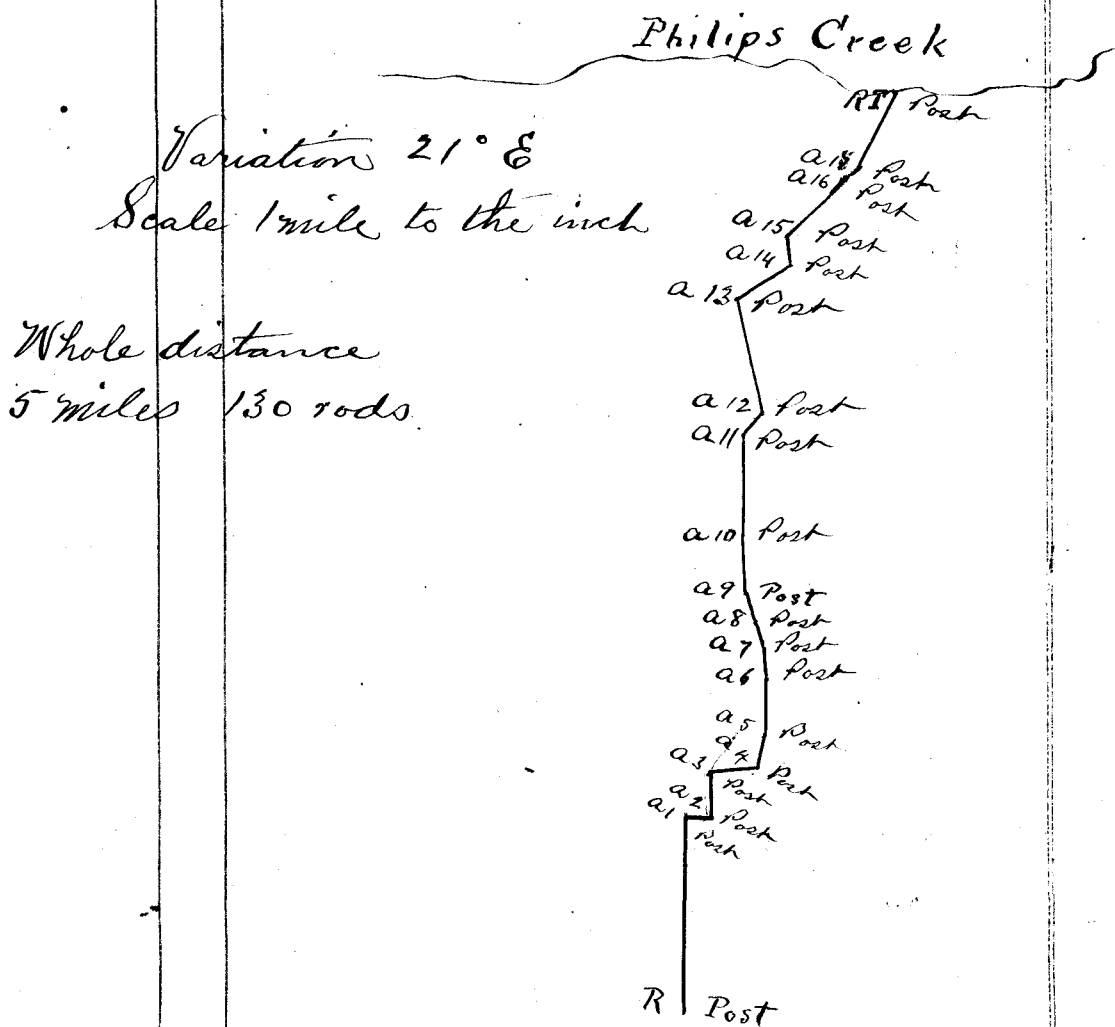 Philips Creek
RT Post
Variation 21° E
Scale 1 mile to the inch
Whole distance
5 miles 130 rods.
a 18 Post
a 16 Post
a 15 Post
a 14 Post
a 13 Post
a 12 Post
a 11 Post
a 10 Post
a 9 Post
a 8 Post
a 7 Post
a 6 Post
a 5 Post
a 4 Post
a 3 Post
a 2 Post
a 1 Post
R Post